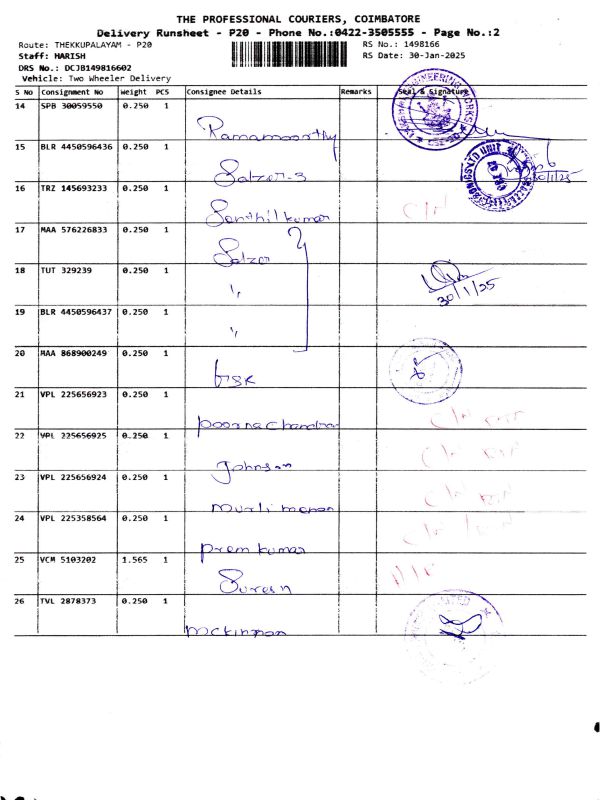 THE PROFESSIONAL COURIERS, COIMBATORE
Delivery Runsheet - P20 - Phone No.:0422-3505555 - Page No.:2
Route: THEKKUPALAYAM - P20 RS No.: 1498166
Staff: HARISH RS Date: 30-Jan-2025
DRS No.: DCJB149816602
Vehicle: Two Wheeler Delivery
S No Consignment No Weight PCS Consignee Details Remarks Seal & Signature
14 SPB 30059550 0.250 1
Ramamoorthy
15 BLR 4450596436 0.250 1
Salzer-3
16 TRZ 145693233 0.250 1
Senthilkumar
17 MAA 576226833 0.250 1
Salzer
18 TUT 329239 0.250 1
"
30/1/25
19 BLR 4450596437 0.250 1
"
20 MAA 868900249 0.250 1
GSK
21 VPL 225656923 0.250 1
poornachandran
22 VPL 225656925 0.250 1
Johnson
23 VPL 225656924 0.250 1
murli menon
24 VPL 225358564 0.250 1
prem kumar
25 VCM 5103202 1.565 1
Suresh
26 TVL 2878373 0.250 1